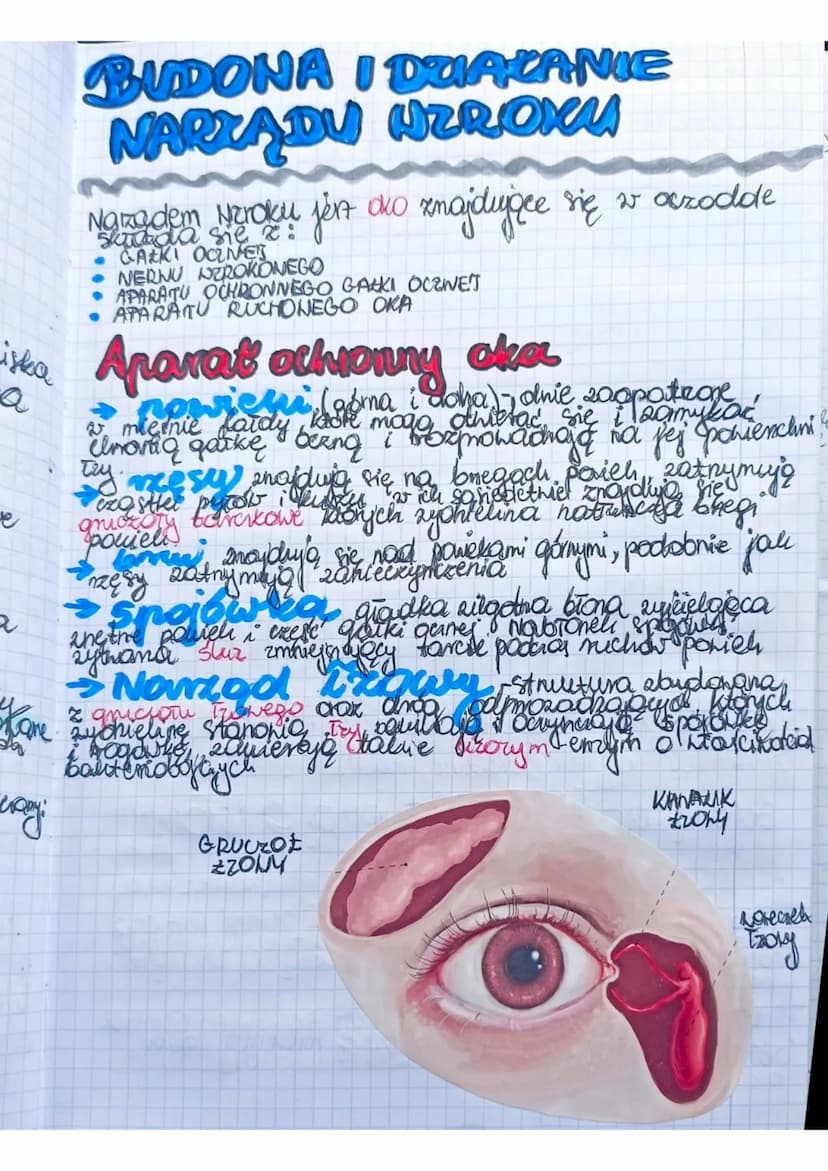 BUDOWA I DZIAŁANIE
NARZĄDU WZROKU
Narządem wzroku jest oko znajdujące się w oczodole
składa się z:
• GAŁKI OCZNEJ
• NERWU WZROKOWEGO
• APARATU OCHRONNEGO GAŁKI OCZNEJ
• APARATU RUCHOWEGO OKA
Aparat ochronny oka
→ powieki (górna i dolna) - dnie zaopatrzone
w mięśnie każdy, które mogą otwierać się i zamykać
chronią gałkę oczną i rozprowadzają na jej powierzchni
łzy
→ rzęsy znajdują się na brzegach powiek, zatrzymują
cząstki pyłów i kurzu, w ich sąsiedztwie znajdują się
gruczoły których wydzielina natłuszcza brzegi
powieki
→ brwi znajdują się nad powiekami górnymi, podobnie jak
rzęsy zatrzymują zanieczyszczenia
→ spojówka gładka wilgotna błona wyścielająca
wnętrze powieki i część gałki ocznej. Nabłonek spojówki
śluz zmniejszający tarcie podczas ruchów powiek
→ Narząd łzowy - struktura zbudowana
z gruczołu łzowego oraz dróg odprowadzających, których
wydzielinę stanowią łzy, nawilżają i oczyszczają spojówkę
i rogówkę, zawierają także lizozym - enzym o właściwościach
bakteriobójczych
iska
a
e
a
kane
GRUCZOŁ
ŁZOWY
KANALIK
ŁZOWY
woreczek
łzowy